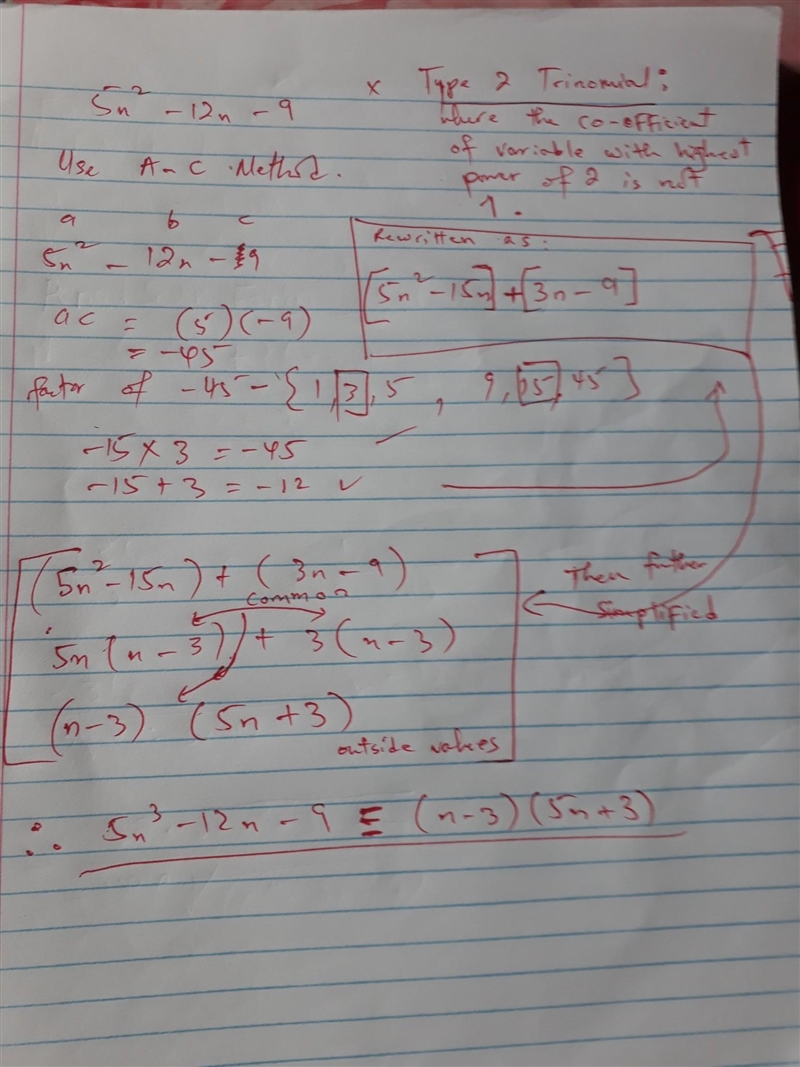 5n² - 12n - 9
x Type 2 Trinomial:
where the co-efficient
of variable with highest
power of 2 is not
1.
Use A-C Method.
a b c
5n² - 12n - 9
Rewritten as:
[5n² - 15n] + [3n - 9]
ac = (5)(-9)
= -45
factor of -45 - {1, 3, 5, 9, 15, 45}
-15 × 3 = -45
-15 + 3 = -12 ✓
(5n² - 15n) + (3n - 9)
common
5n(n - 3) + 3(n - 3)
(n - 3) (5n + 3)
outside values
Then further
simplified
∴ 5n³ - 12n - 9 ≡ (n - 3)(5n + 3)